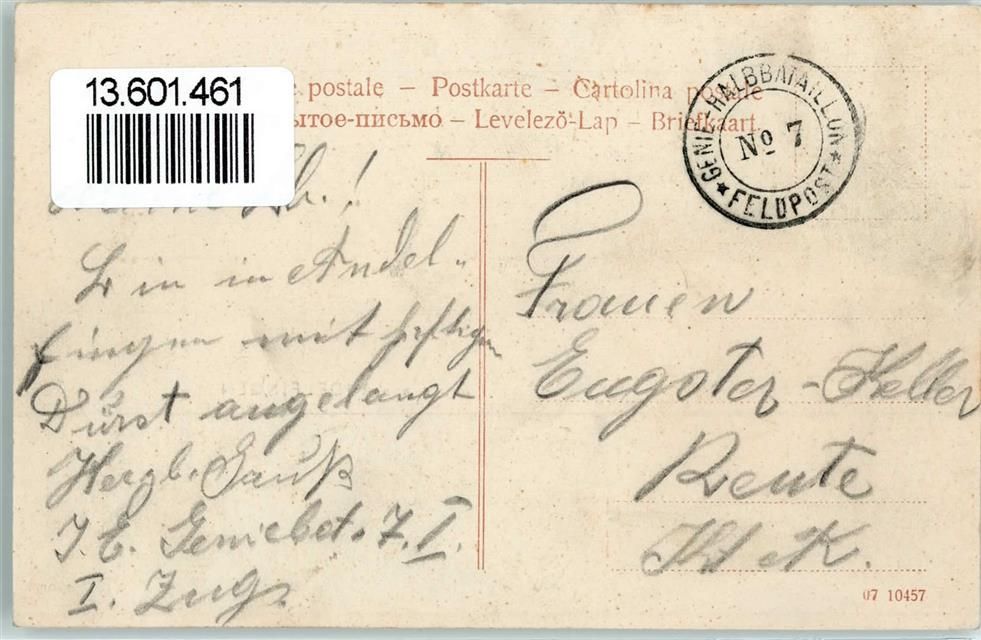 13.601.461
e postale – Postkarte – Cartolina postale
ытое-письмо – Levelező-Lap – Briefkaart
GENIE-HALBBATAILLON
No 7
★ FELDPOST ★
Lb.!
Bin in Andel-
fingen mit heftigen
Durst angelangt
Herzl. Gruß
J. E. Geniebat. 7. I.
I. Zug.
Frauen
Eugster-Keller
Reute
Kt
07 10457